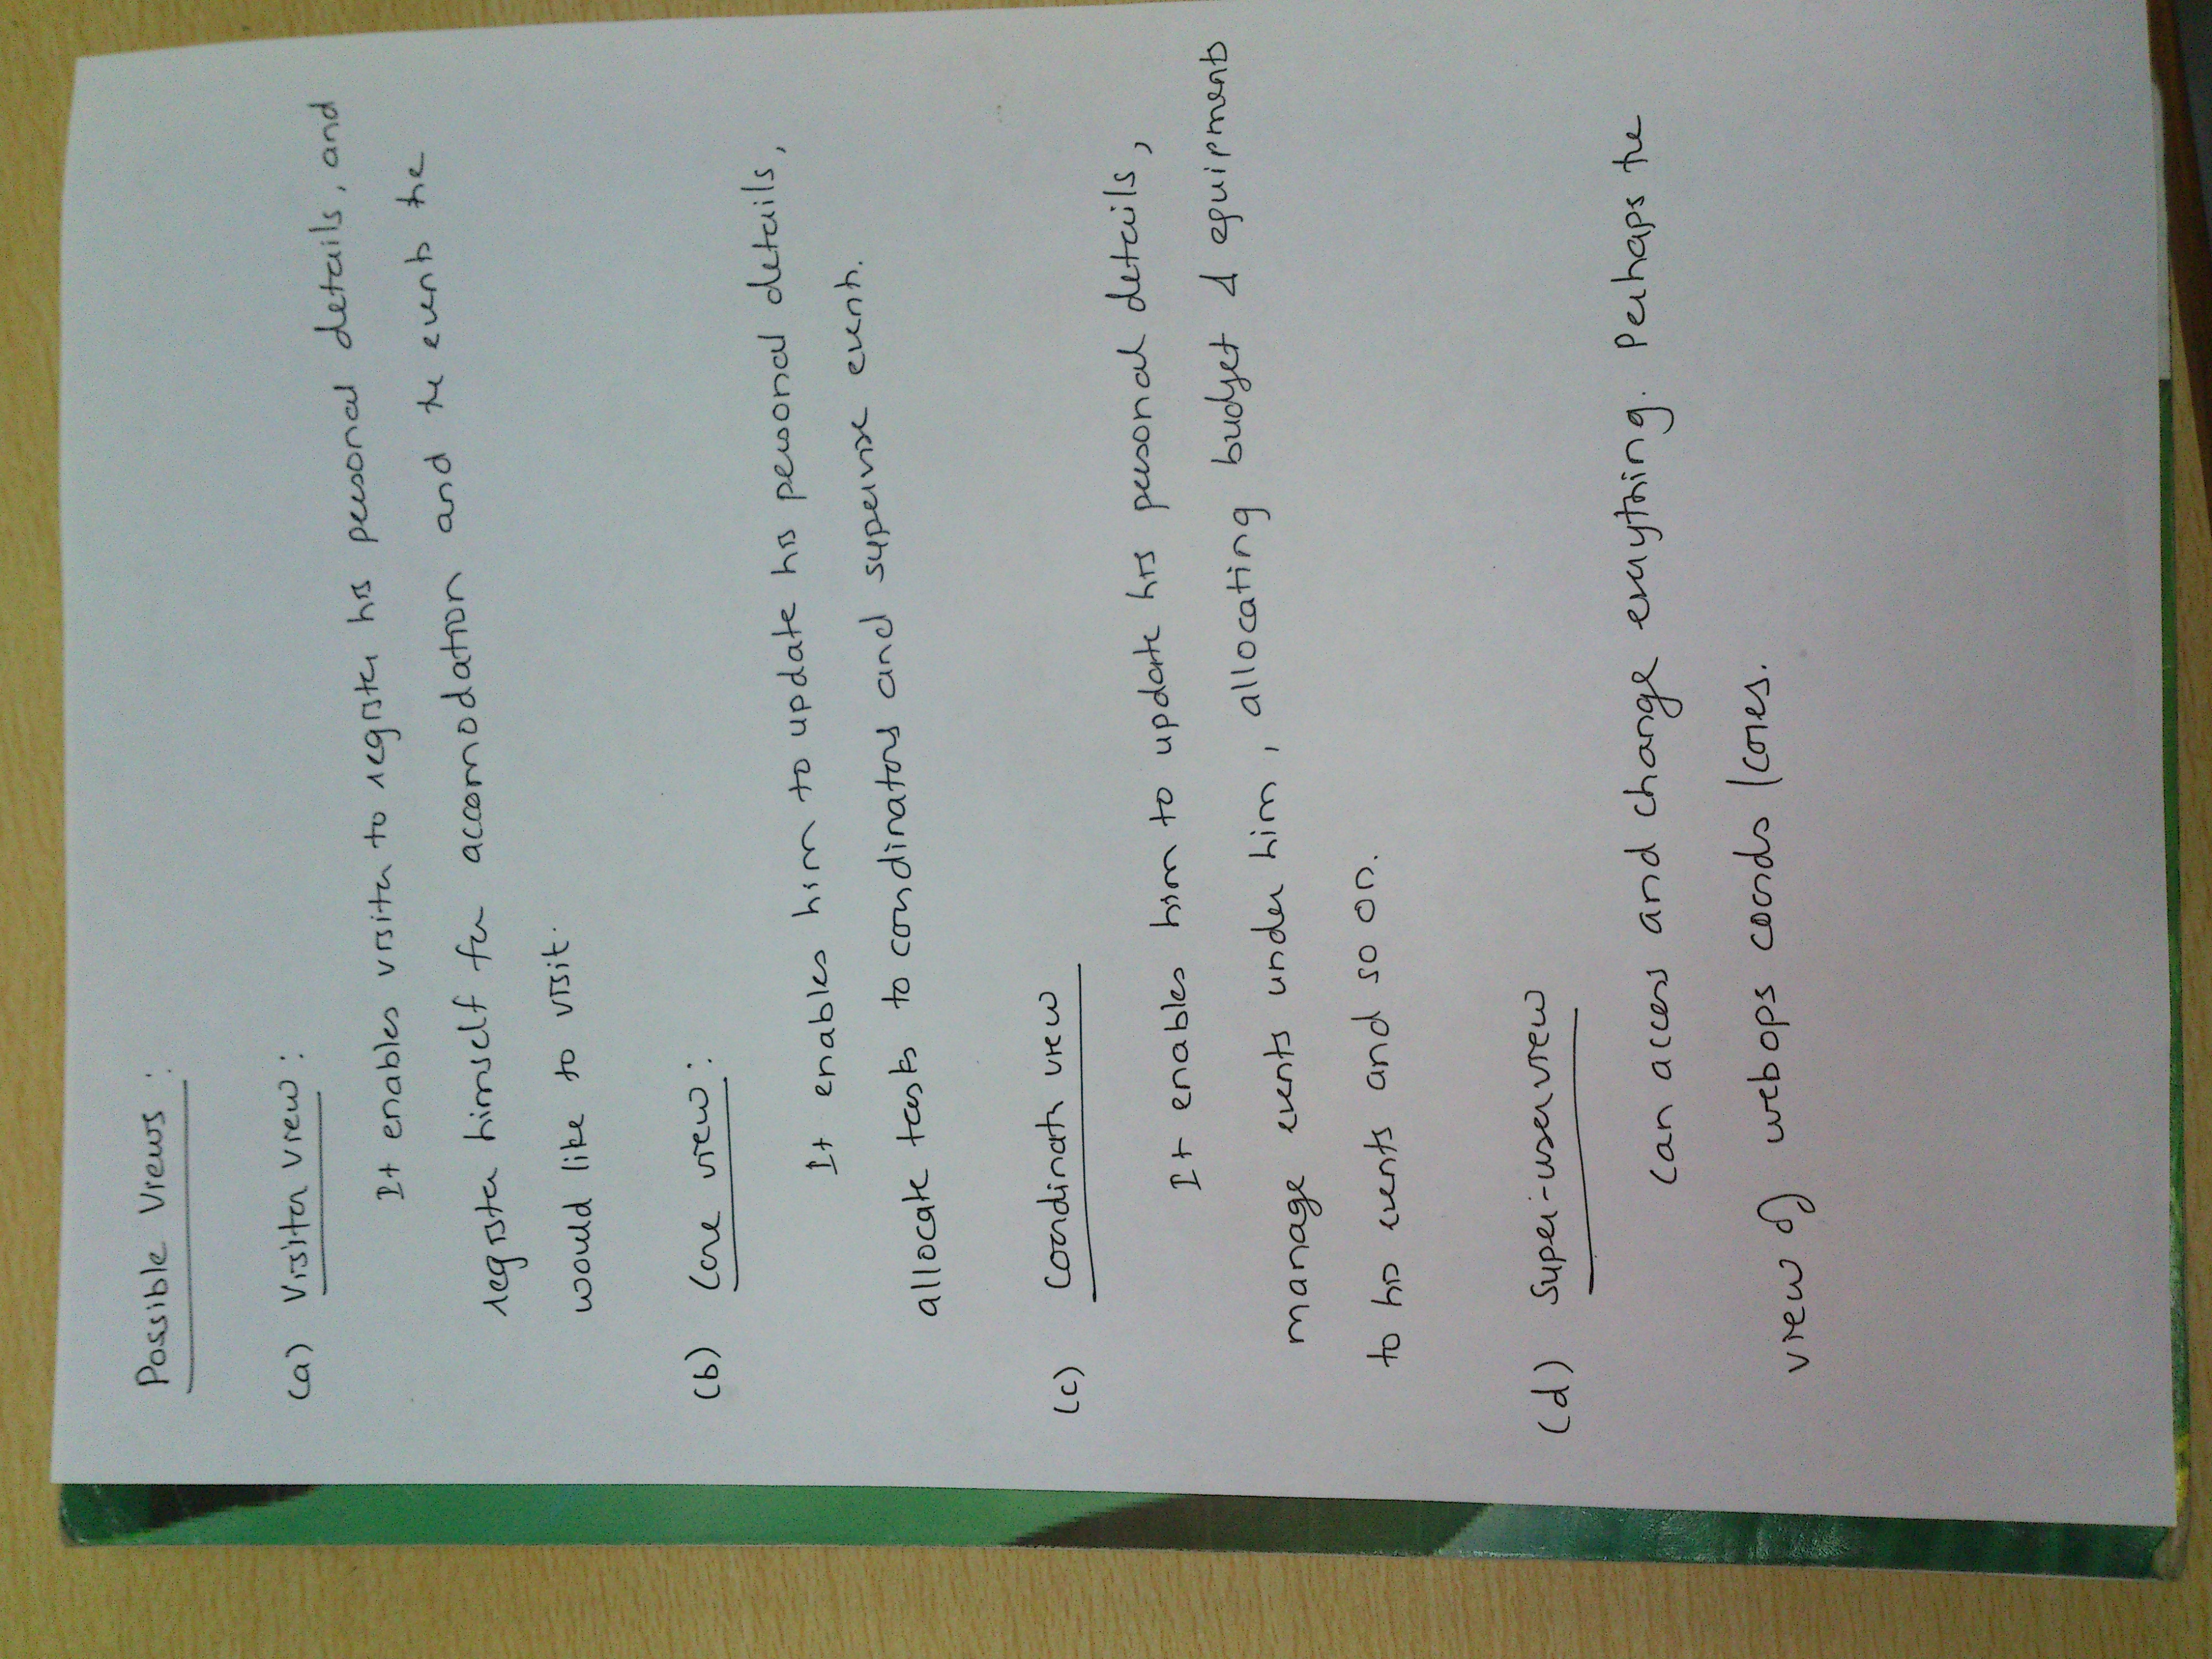 Possible Views :
(a) Visitor view :
It enables visitor to register his personal details, and
register himself for accomodation and the events he
would like to visit.
(b) Core view :
It enables him to update his personal details,
allocate tasks to coordinators and supervise events.
(c) Coordinator view
It enables him to update his personal details,
manage events under him, allocating budget & equipments
to his events and so on.
(d) Super-user view
Can access and change everything. Perhaps the
view of webops coords /cores.